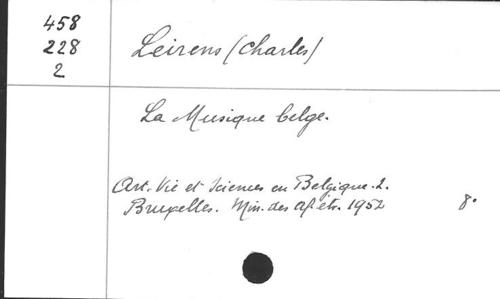 458
228
2
Leirens (Charles)
La Musique belge.
Art. Vie et Sciences en Belgique. 2.
Bruxelles. Min. des Af. étr. 1952 8°